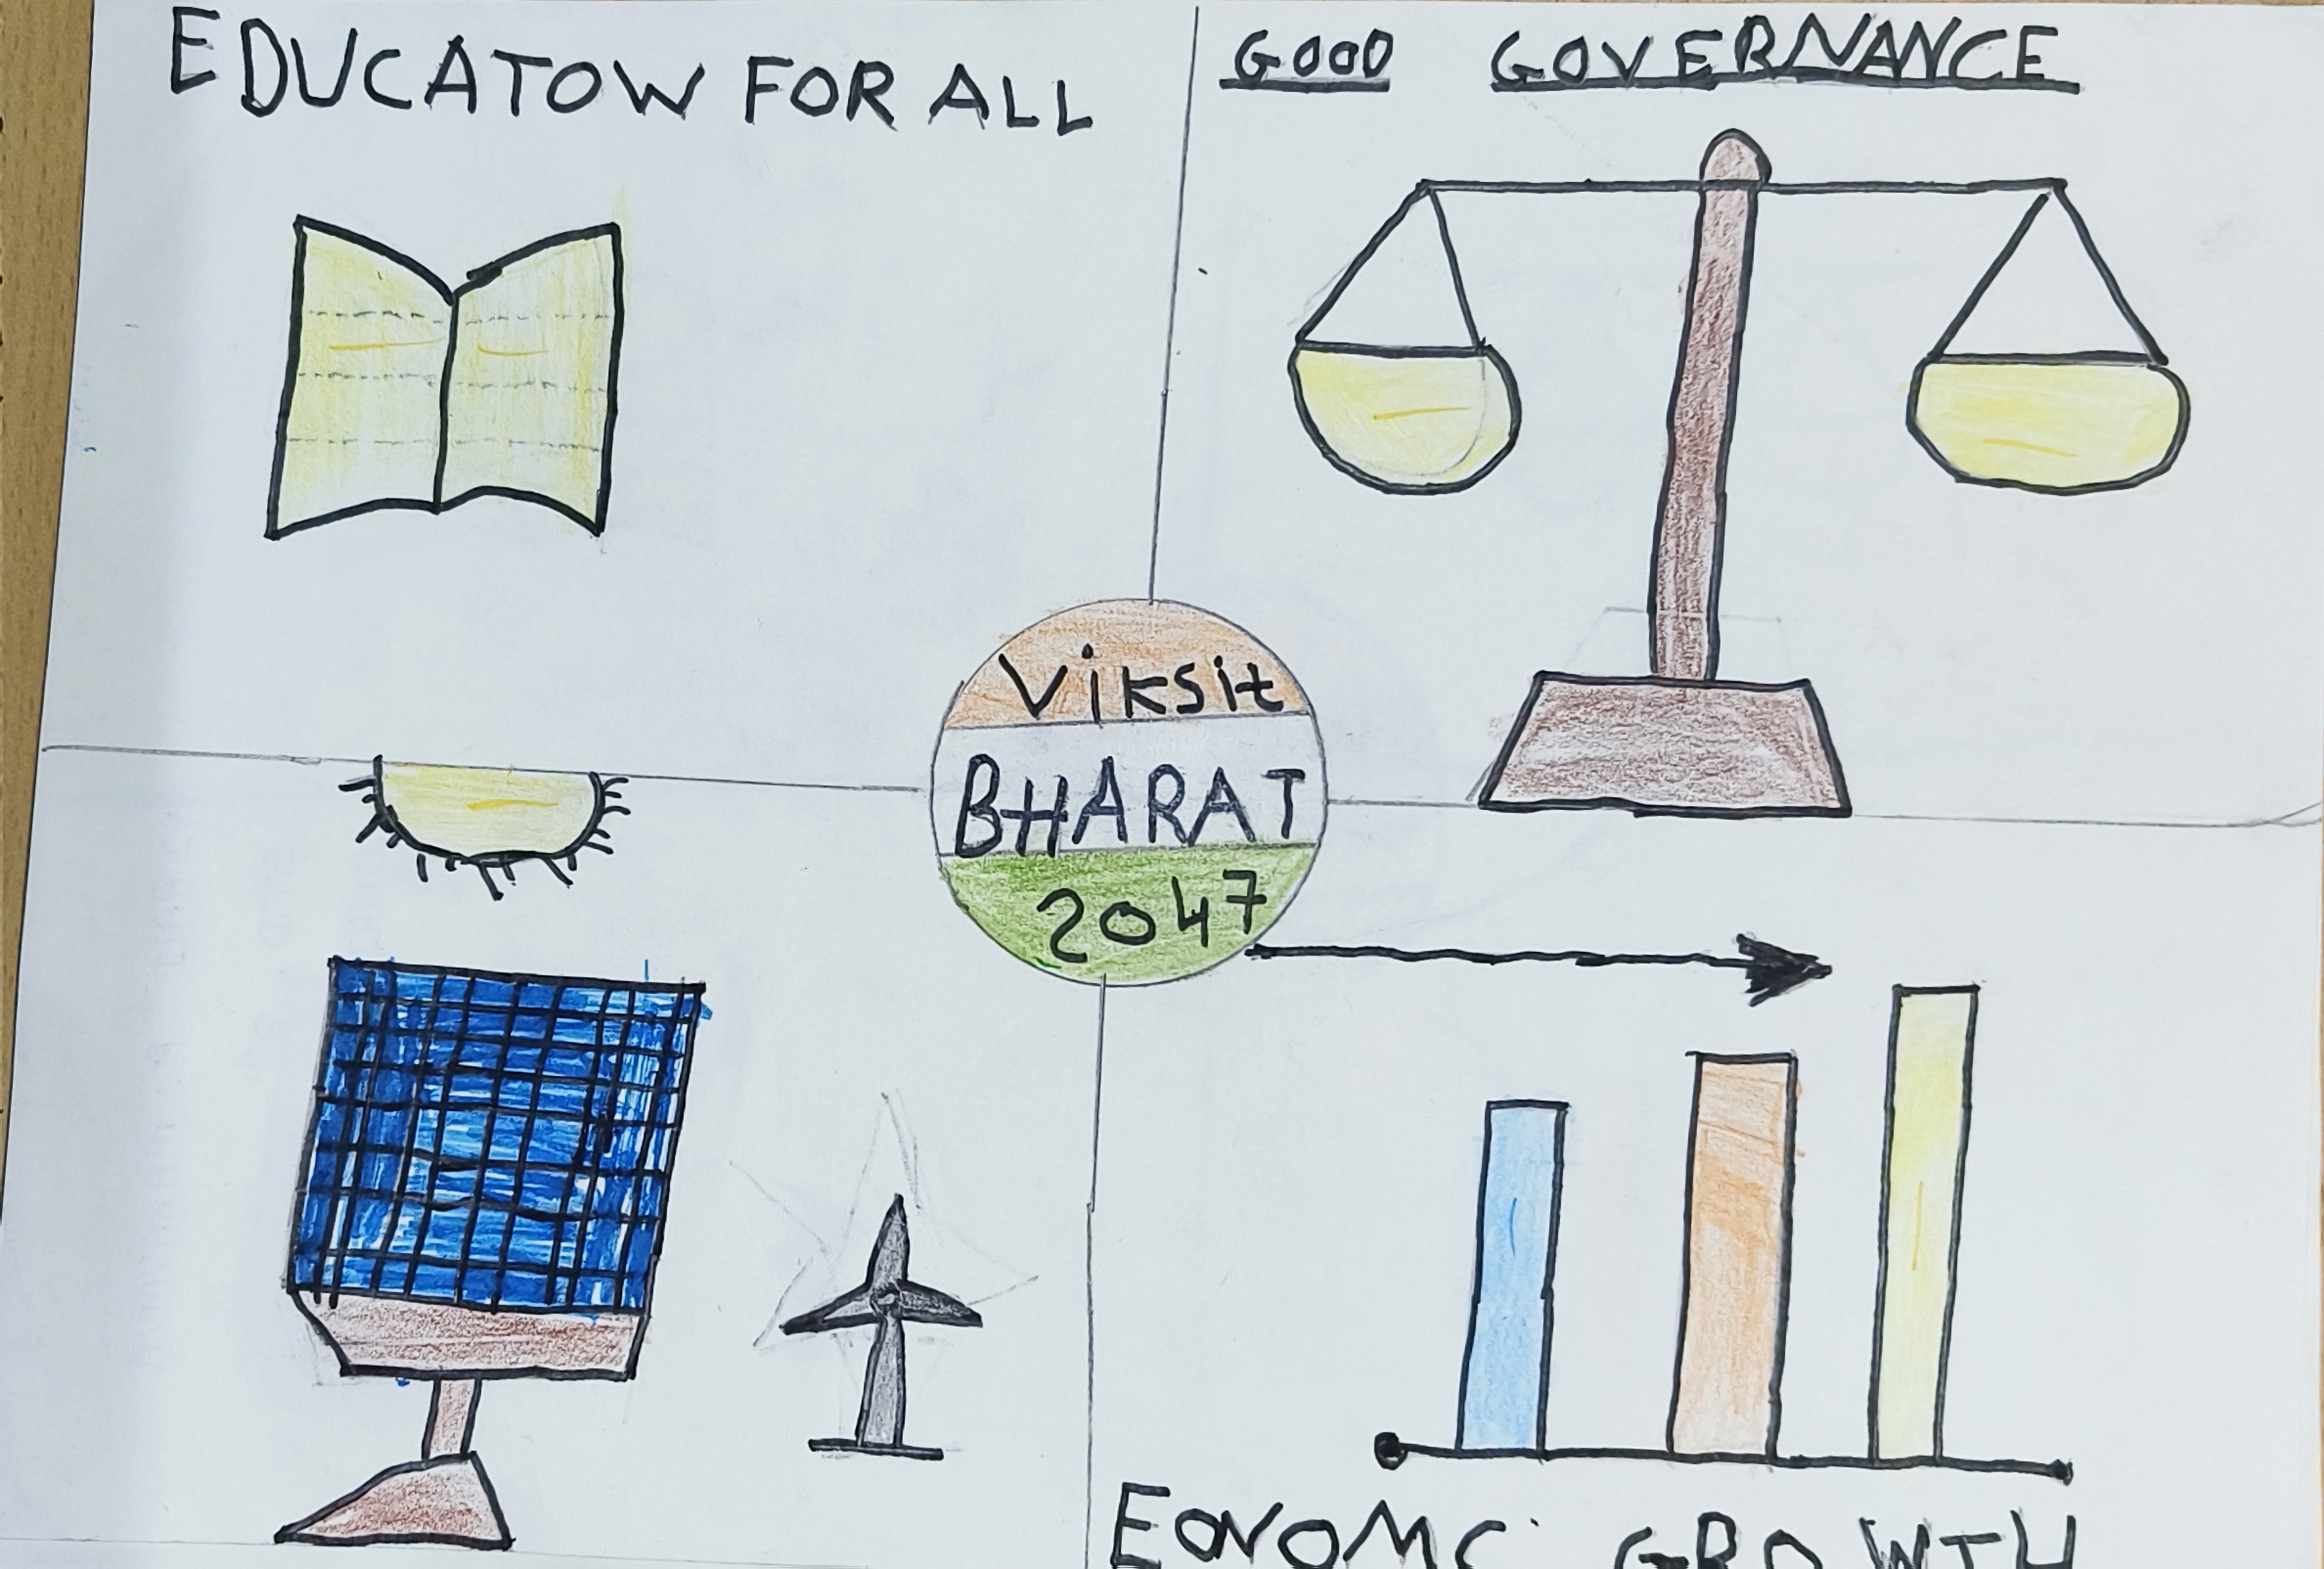 EDUCATOW FOR ALL
GOOD GOVERNANCE
Viksit
BHARAT
2047
EONOMC GROWTH